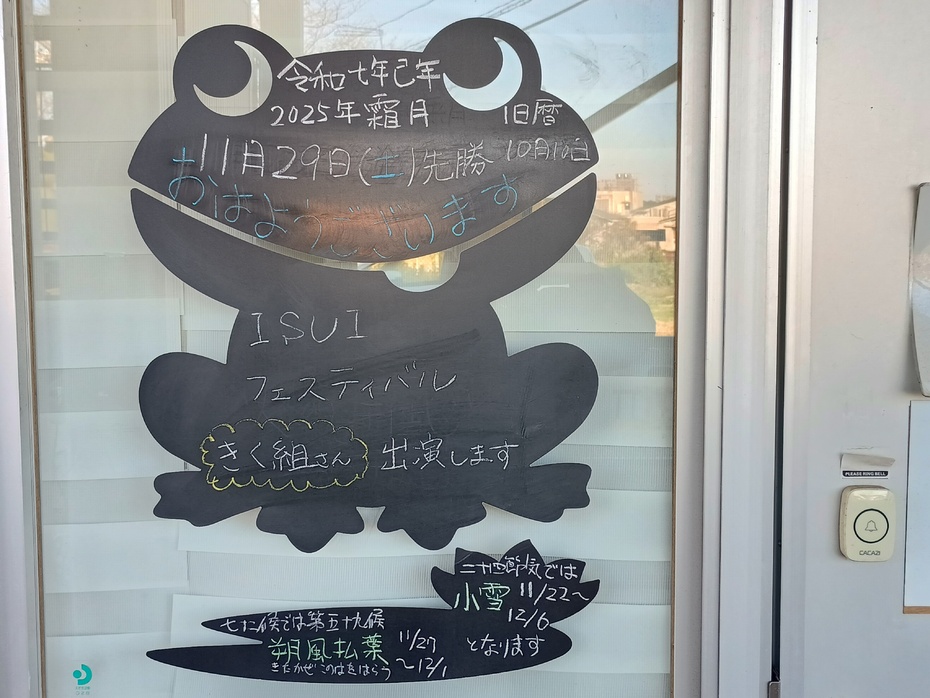 令和七年己年
2025年 霜月 旧暦
11月29日(土)先勝 10月10日
おはようございます
ISUI
フェスティバル
きく組さん 出演します
二十四節気では
小雪 11/22～
12/6
となります
七十二候では第五十九候
朔風払葉 11/27
～12/1
きたかぜ このはをはらう
PLEASE RING BELL
CACAZI